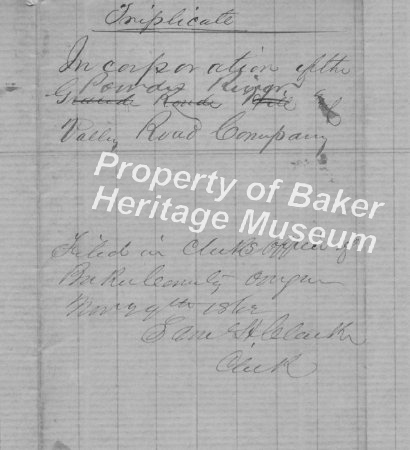 Triplicate
Incorporation of the
Powder River
Grande Ronde
Valley Road Company
Property of Baker
Heritage Museum
Filed in Clerks office of
Baker County Oregon
Nov 29th 1862
Sam H Clark
Clerk